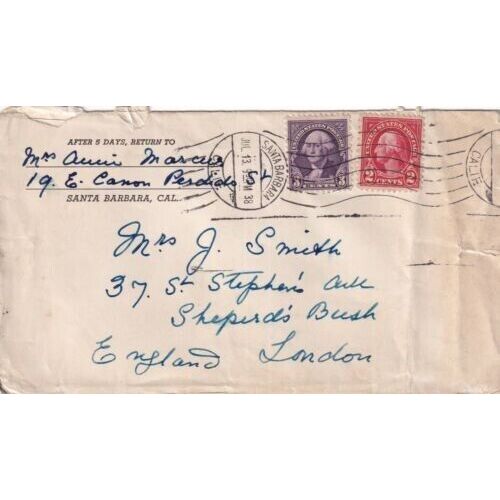 AFTER 5 DAYS, RETURN TO
Mrs Annie Marcus
19. E. Canon Perdido St
SANTA BARBARA, CAL.
SANTA BARBARA
JUL 13
M
38
CALIF
UNITED STATES POSTAGE
3 CENTS 3
UNITED STATES POSTAGE
2 CENTS 2
Mrs J. Smith
37. St Stephen's Ave
Sheperd's Bush
England London